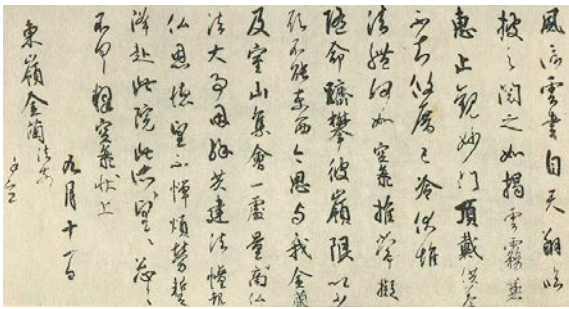 風信雲書自天翔臨
披之閲之如掲雲霧兼
恵止観妙門頂戴供養
不知攸厝已冷伏惟
法體何如空海推常擬
随命躋攀彼嶺限以少
願不能東西今思与我金蘭
及室山集會一處量商仏
法大事因縁共建法幢報
仏恩徳望不憚煩勞蹔
降赴此院此所望々忩々
不具釋空海状上
九月十一日
東嶺金蘭法前
謹空